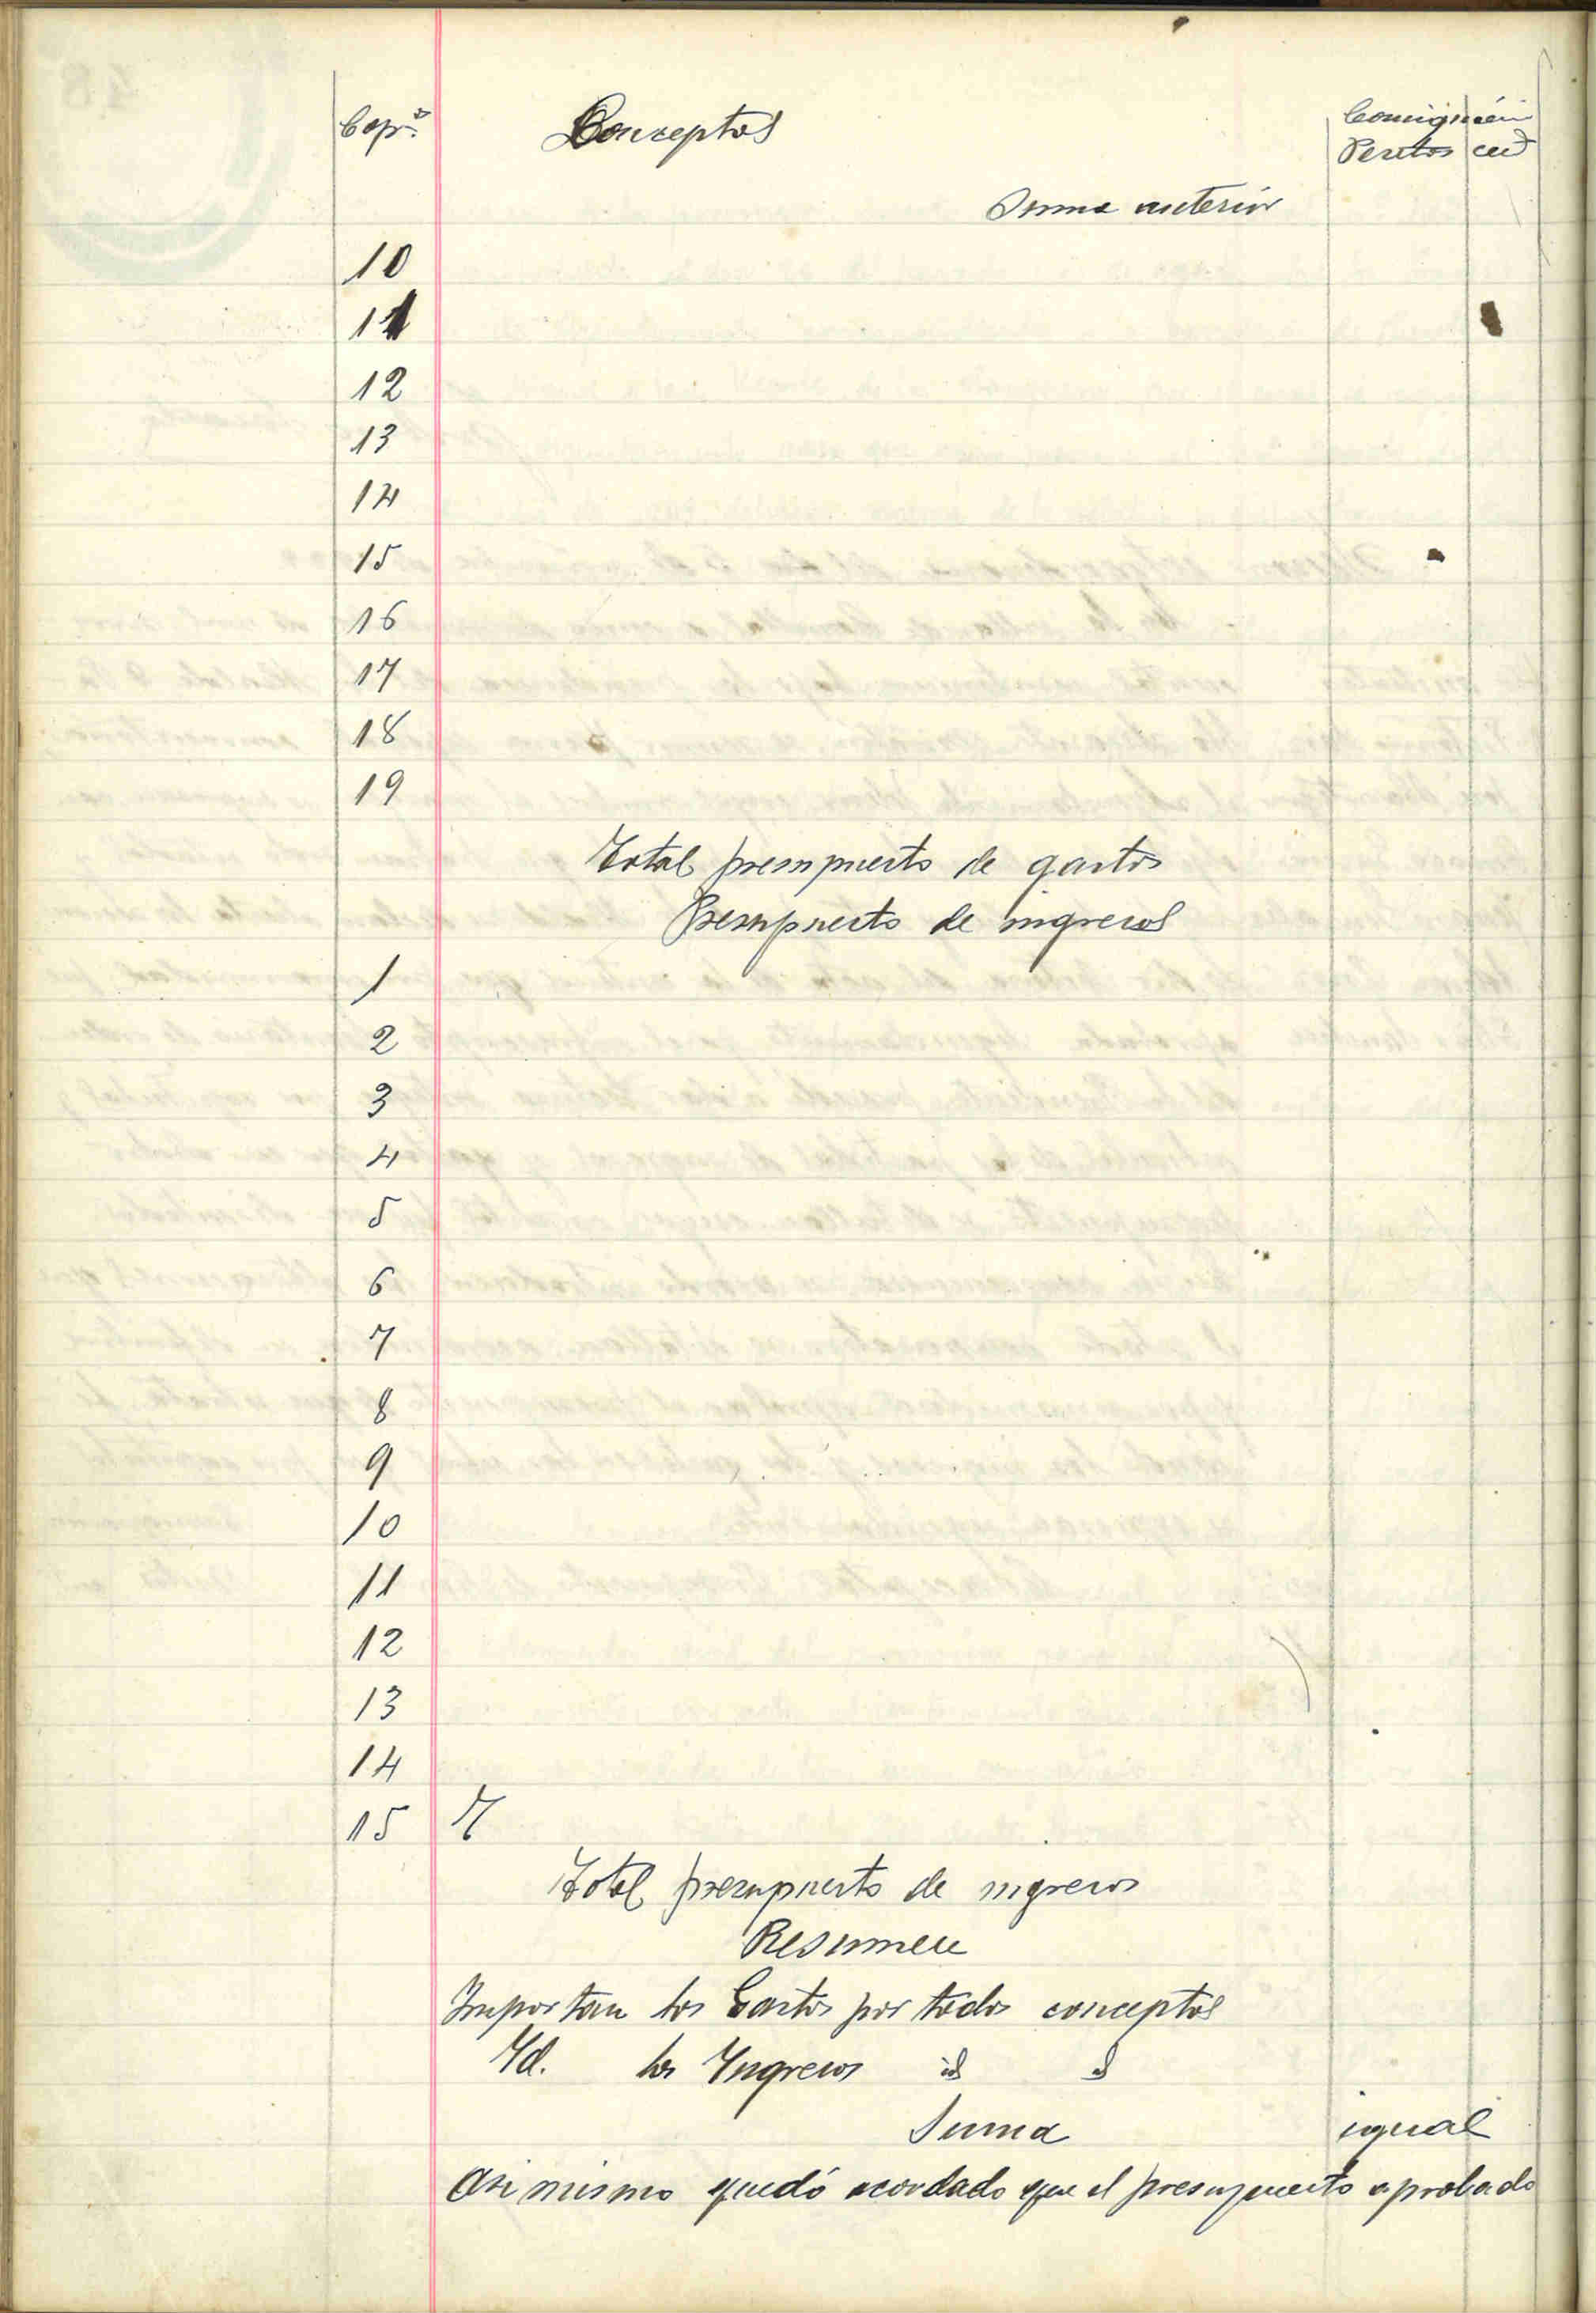 Cap.s Conceptos Consignación
Pesetas cent
Suma anterior
10
11
12
13
14
15
16
17
18
19
Total presupuesto de gastos
Presupuesto de ingresos
1
2
3
4
5
6
7
8
9
10
11
12
13
14
15
Total presupuesto de ingresos
Resumen
Importan los Gastos por todos conceptos
Id. los Ingresos id id
Suma igual
Asi mismo quedó acordado que el presupuesto aprobado